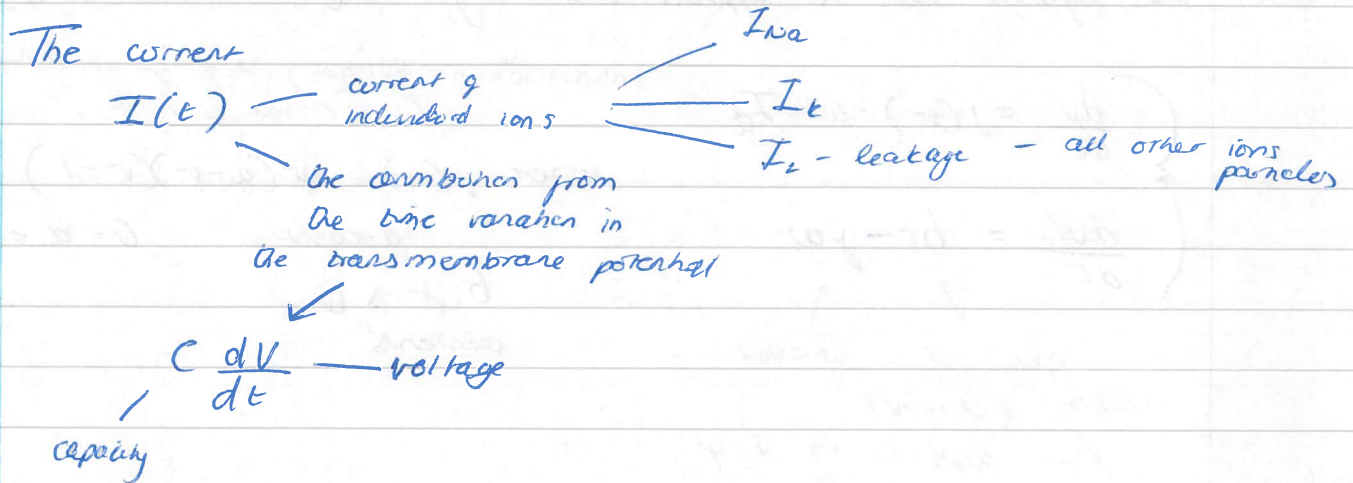 The current
I(t) — current of individual ions
I_Na
I_k
I_L - leakage - all other ions
particles
the contribution from
the time variation in
the transmembrane potential
C dV/dt — voltage
capacity